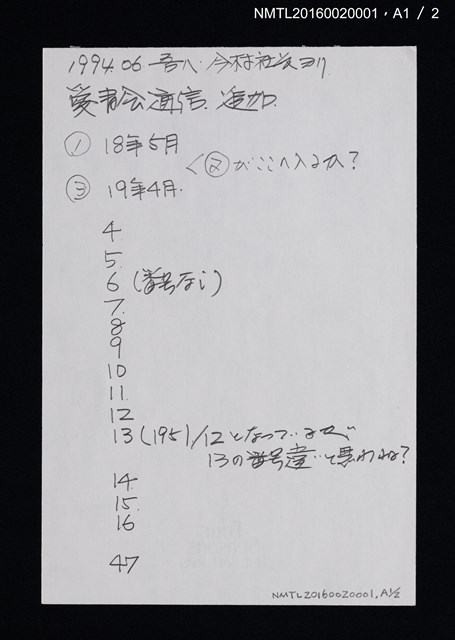 NMTL20160020001, A1 / 2
1994.06 吾八 今村社長ヨリ
愛書会通信 追加
① 18年5月
<②がここへ入るか?
③ 19年4月
4
5
6 (番号なし)
7
8
9
10
11
12
13 (195)/12となっているが
13の番号違いと思われる?
14
15
16
47
NMTL20160020001, A1/2